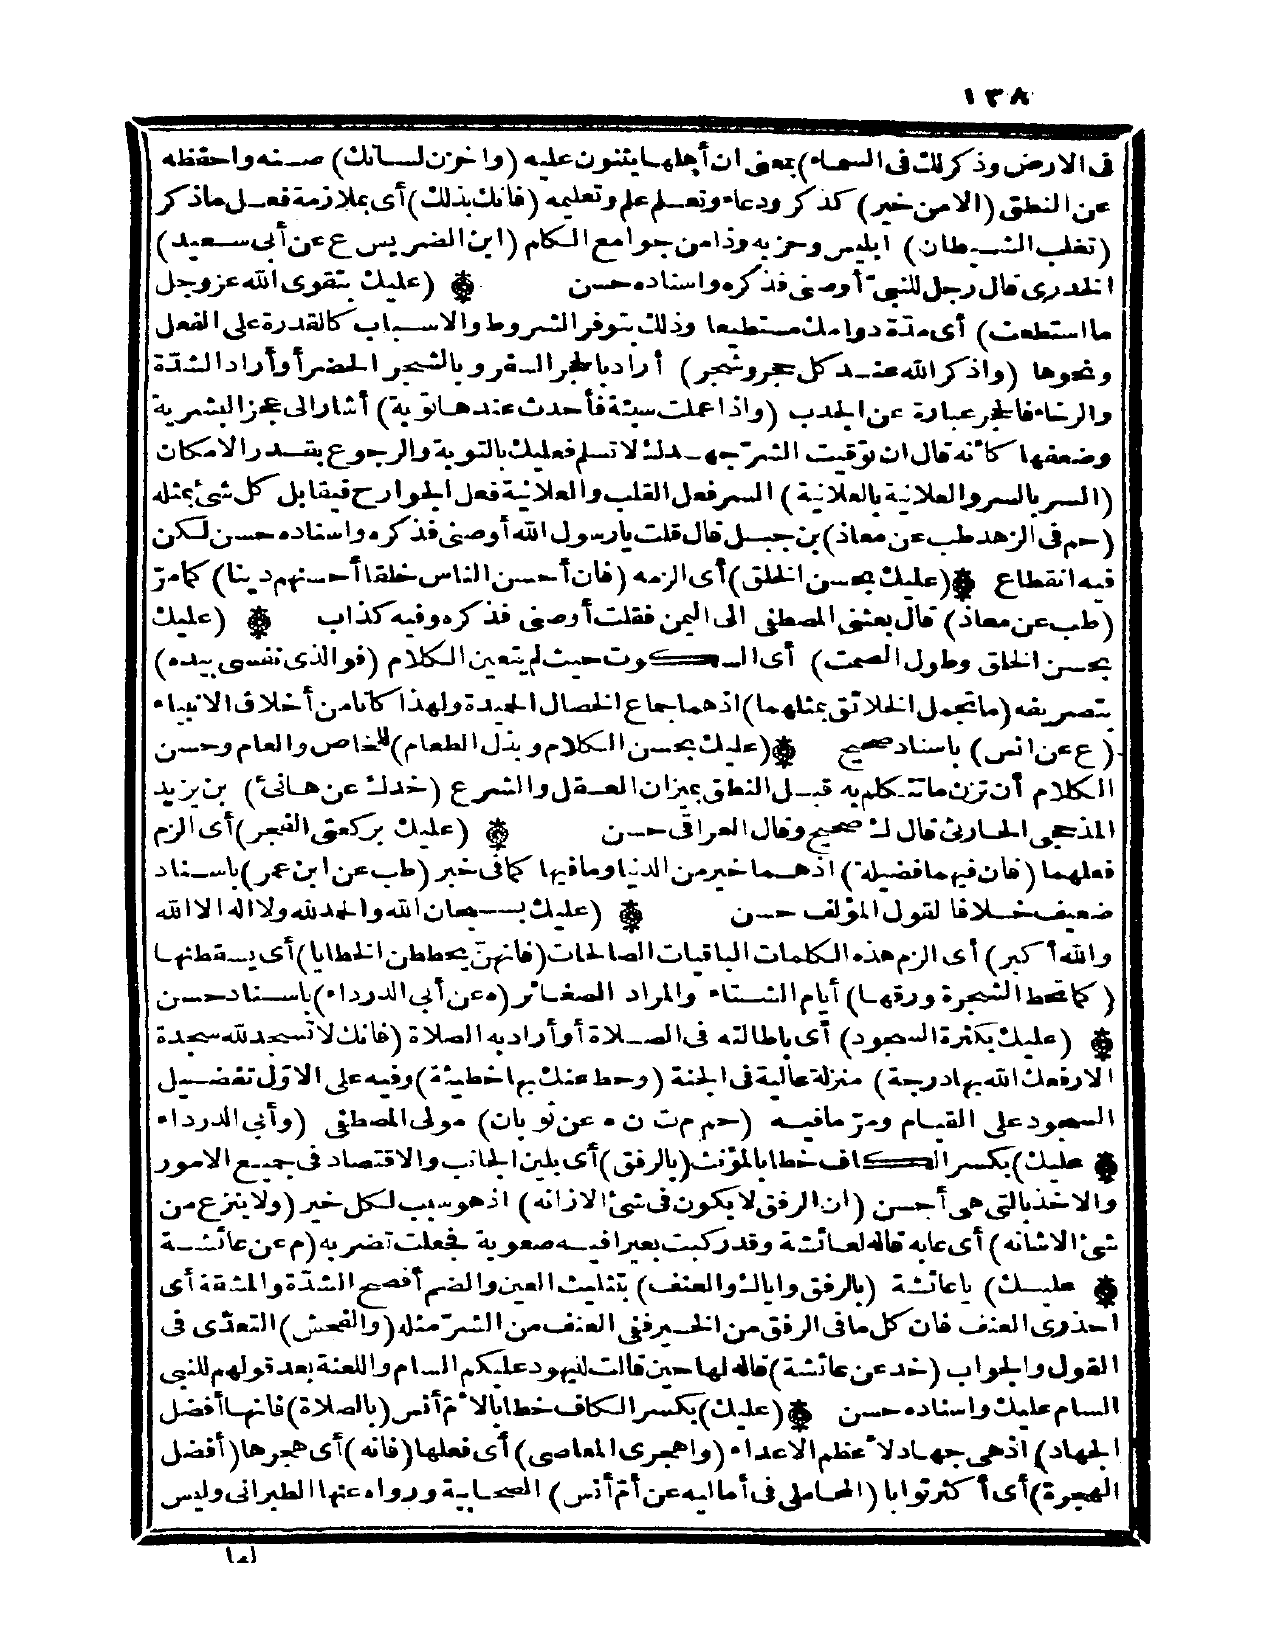 ١٣٨
فى الارض وذكر لك فى السماء) بمعنى ان أهلها يثنون عليه (واخزن لسانك) صنه واحفظه
عن النطق (الا من خير) كذكر ودعاء وتعلم علم وتعليمه (فانك بذلك) أى بملازمة فعل ماذكر
(تغلب الشيطان) ابليس وحزبه وذا من جوامع الكلم (ابن الضريس ع عن أبى سعيد)
الخدرى قال رجل للنبىّ أوصنى فذكره واسناده حسن (عليك بتقوى الله عز وجل
ما استطعت) أى مدّة دوامك مستطيعا وذلك بتوفر الشروط والاسباب كالقدرة على الفعل
ونحوها (واذكر الله عند كل حجر وشجر) أراد بالحجر السفر وبالشجر الحضر أو أراد الشدّة
والرخاء فالحجر عبارة عن الجدب (واذا عملت سيئة فأحدث عندها توبة) أشار الى عجز البشرية
وضعفها كأنه قال ان توقيت الشرّ جهدك لا تسلم فعليك بالتوبة والرجوع بقدر الامكان
(السر بالسر والعلانية بالعلانية) السر فعل القلب والعلانية فعل الجوارح فيقابل كل شئ بمثله
(حم فى الزهد طب عن معاذ) بن جبل قال قلت يارسول الله أوصنى فذكره واسناده حسن لكن
فيه انقطاع (عليك بحسن الخلق) أى الزمه (فان أحسن الناس خلقا أحسنهم دينا) كما مرّ
(طب عن معاذ) قال بعثنى المصطفى الى اليمن فقلت أوصنى فذكره وفيه كذاب (عليك
بحسن الخلق وطول الصمت) أى السكوت حيث لم يتعين الكلام (فوالذى نفسى بيده)
بتصريفه (ما تجمل الخلائق بمثلهما) اذ هما جماع الخصال الحميدة ولهذا كانا من أخلاق الانبياء
(ع عن انس) باسناد صحيح (عليك بحسن الكلام وبذل الطعام) للخاص والعام وحسن
الكلام أن تزن ما تتكلم به قبل النطق بميزان العقل والشرع (خدك عن هانئ) بن يزيد
المذحجى الحارثى قال ك صحيح وقال العراقى حسن (عليك بركعتى الفجر) أى الزم
فعلهما (فان فيهما فضيلة) اذ هما خير من الدنيا وما فيها كما فى خبر (طب عن ابن عمر) باسناد
ضعيف خلافا لقول المؤلف حسن (عليك بسبحان الله والحمد لله ولا اله الا الله
والله أكبر) أى الزم هذه الكلمات الباقيات الصالحات (فانهنّ يحططن الخطايا) أى يسقطنها
(كما تحط الشجرة ورقها) أيام الشتاء والمراد الصغائر (ه عن أبى الدرداء) باسناد حسن
(عليك بكثرة السجود) أى باطالته فى الصلاة أو أراد به الصلاة (فانك لا تسجد لله سجدة
الا رفعك الله بها درجة) منزلة عالية فى الجنة (وحط عنك بها خطيئة) وفيه على الاوّل تفضيل
السجود على القيام ومرّ ما فيه (حم م ت ن ه عن ثوبان) مولى المصطفى (وأبى الدرداء
عليك) بكسر الكاف خطابا لمؤنث (بالرفق) أى بلين الجانب والاقتصاد فى جميع الامور
والاخذ بالتى هى أحسن (ان الرفق لا يكون فى شئ الا زانه) اذ هو سبب لكل خير (ولا ينزع من
شئ الا شانه) أى عابه قاله لعائشة وقد ركبت بعيرا فيه صعوبة فجعلت تضربه (م عن عائشة
عليك) ياعائشة (بالرفق واياك والعنف) بتثليث العين والضم أفصح الشدّة والمشقة أى
احذرى العنف فان كل ما فى الرفق من الخير ففى العنف من الشرّ مثله (والفحش) التعدّى فى
القول والجواب (خد عن عائشة) قاله لها حين قالت لليهود عليكم السام واللعنة بعد قولهم للنبى
السام عليك واسناده حسن (عليك) بكسر الكاف خطابا لامّ أنس (بالصلاة) فانها أفضل
الجهاد) اذ هى جهاد لاعظم الاعداء (واهجرى المعاصى) أى فعلها (فانه) أى هجرها (أفضل
الهجرة) أى أكثر ثوابا (المحاملى فى أماليه عن أمّ أنس) الصحابية ورواه عنها الطبرانى وليس
لها